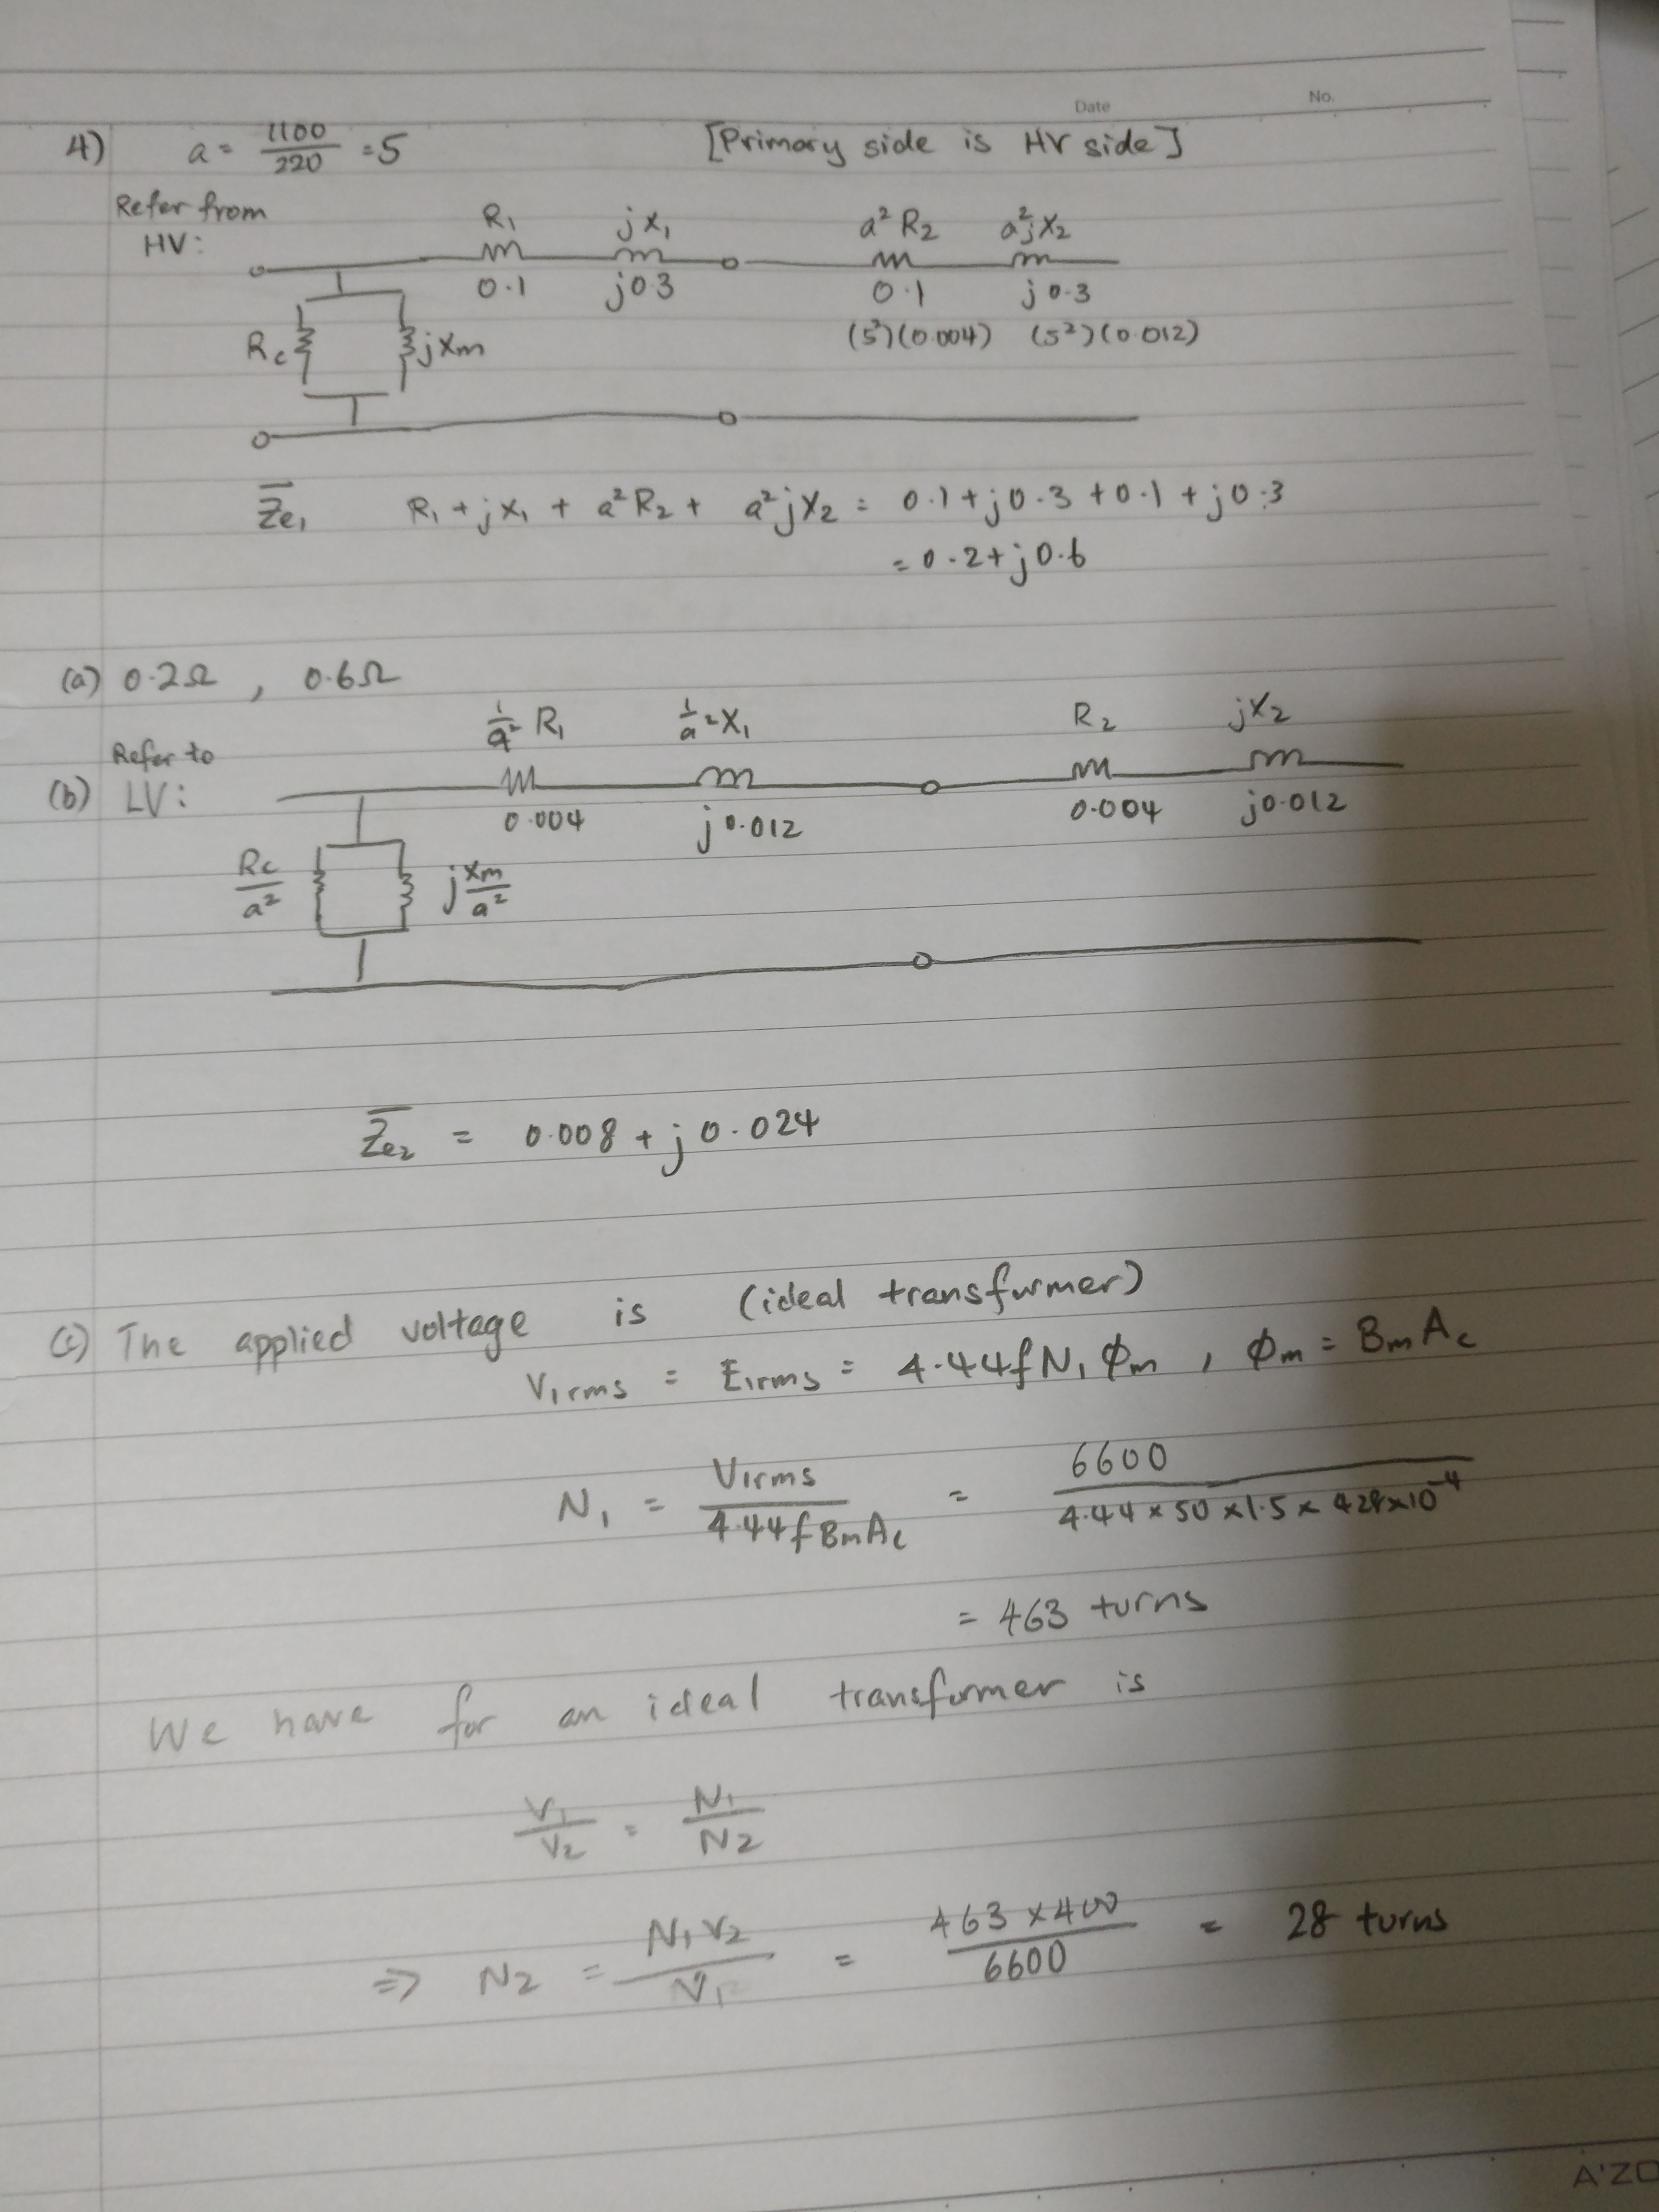 Date No.
4) a = 1100/220 = 5 [Primary side is HV side]
Refer from
HV:
R₁ jX₁ a²R₂ a²jX₂
0.1 j0.3 0.1 j0.3
(5²)(0.004) (5²)(0.012)
Rc jXm
Z̅e₁ R₁ + jX₁ + a²R₂ + a²jX₂ = 0.1 + j0.3 + 0.1 + j0.3
= 0.2 + j0.6
(a) 0.2Ω , 0.6Ω
1/a² R₁ 1/a² X₁ R₂ jX₂
Refer to
(b) LV:
0.004 j0.012 0.004 j0.012
Rc/a² jXm/a²
Z̅e₂ = 0.008 + j0.024
(c) The applied voltage is (ideal transformer)
V₁rms = E₁rms = 4.44fN₁Φm , Φm = BmAc
N₁ = V₁rms/4.44fBmAc = 6600/4.44 × 50 × 1.5 × 428×10⁻⁴
= 463 turns
We have for an ideal transformer is
V₁/V₂ = N₁/N₂
⇒ N₂ = N₁V₂/V₁ = 463 × 400/6600 = 28 turns